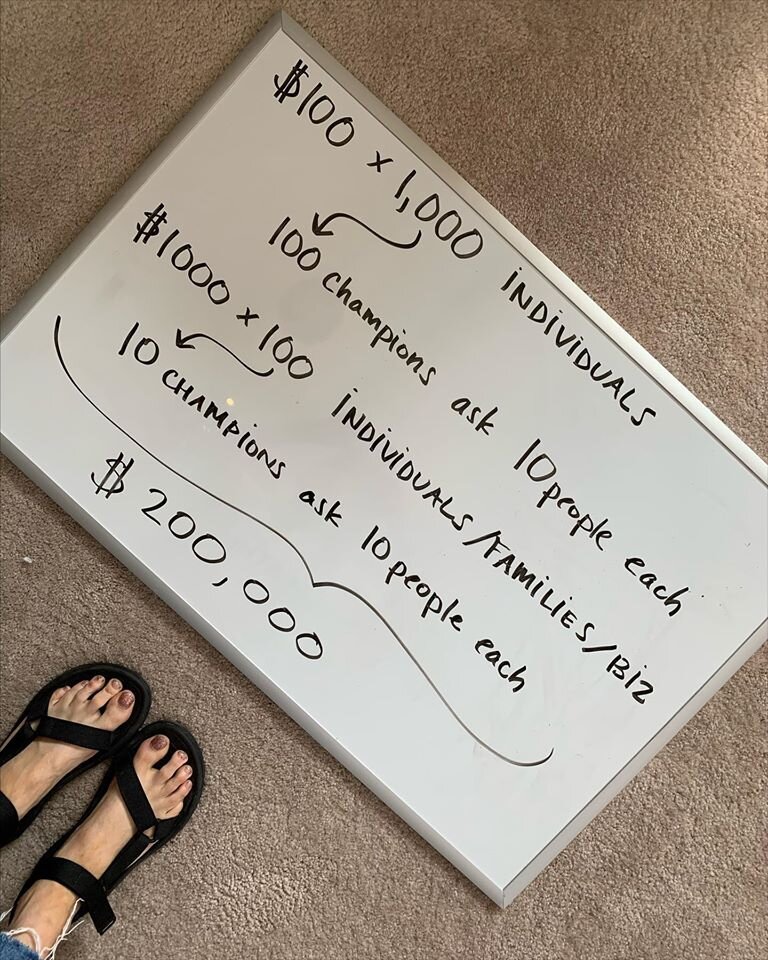 $100 x 1,000 INDIVIDUALS
100 champions ask 10 people each
$1000 x 100 INDIVIDUALS/FAMILIES/BIZ
10 CHAMPIONS ask 10 people each
$ 200,000